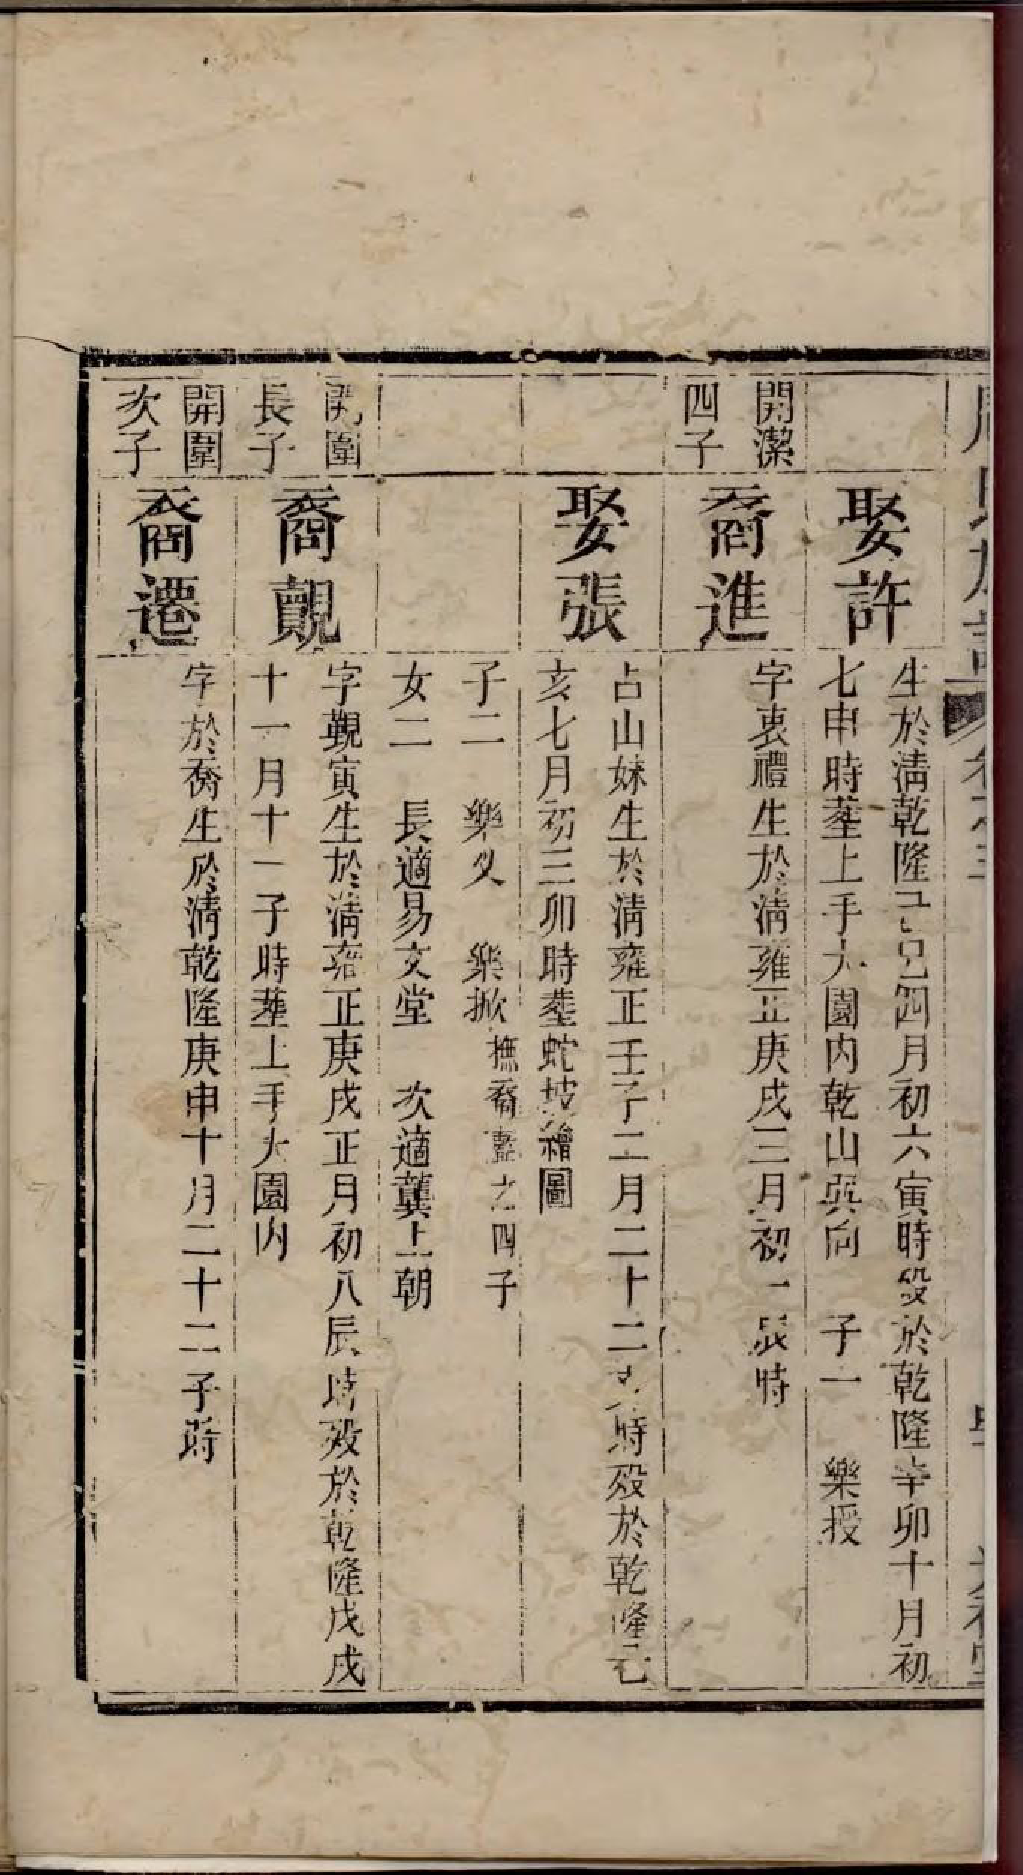 娶許
生於清乾隆己巳四月初六寅時殁於乾隆辛卯十月初
七申時塟上手大園内乾山巽向　子一　樂授
開潔
四子
裔進
字衷禮生於清雍正庚戌三月初一辰時
娶張
占山妹生於清雍正壬子二月二十二 時殁於乾隆己
亥七月初三卯時塟蛇坡繪圖
子二　樂 　樂掀撫裔 之四子
女二　長適易文堂　次適龔上朝
開圍
長子
裔覿
字覲寅生於清雍正庚戌正月初八辰時殁於乾隆戊戌
十一月十一子時塟上手大園内
開圍
次子
裔遷
字於喬生於清乾隆庚申十月二十二子時